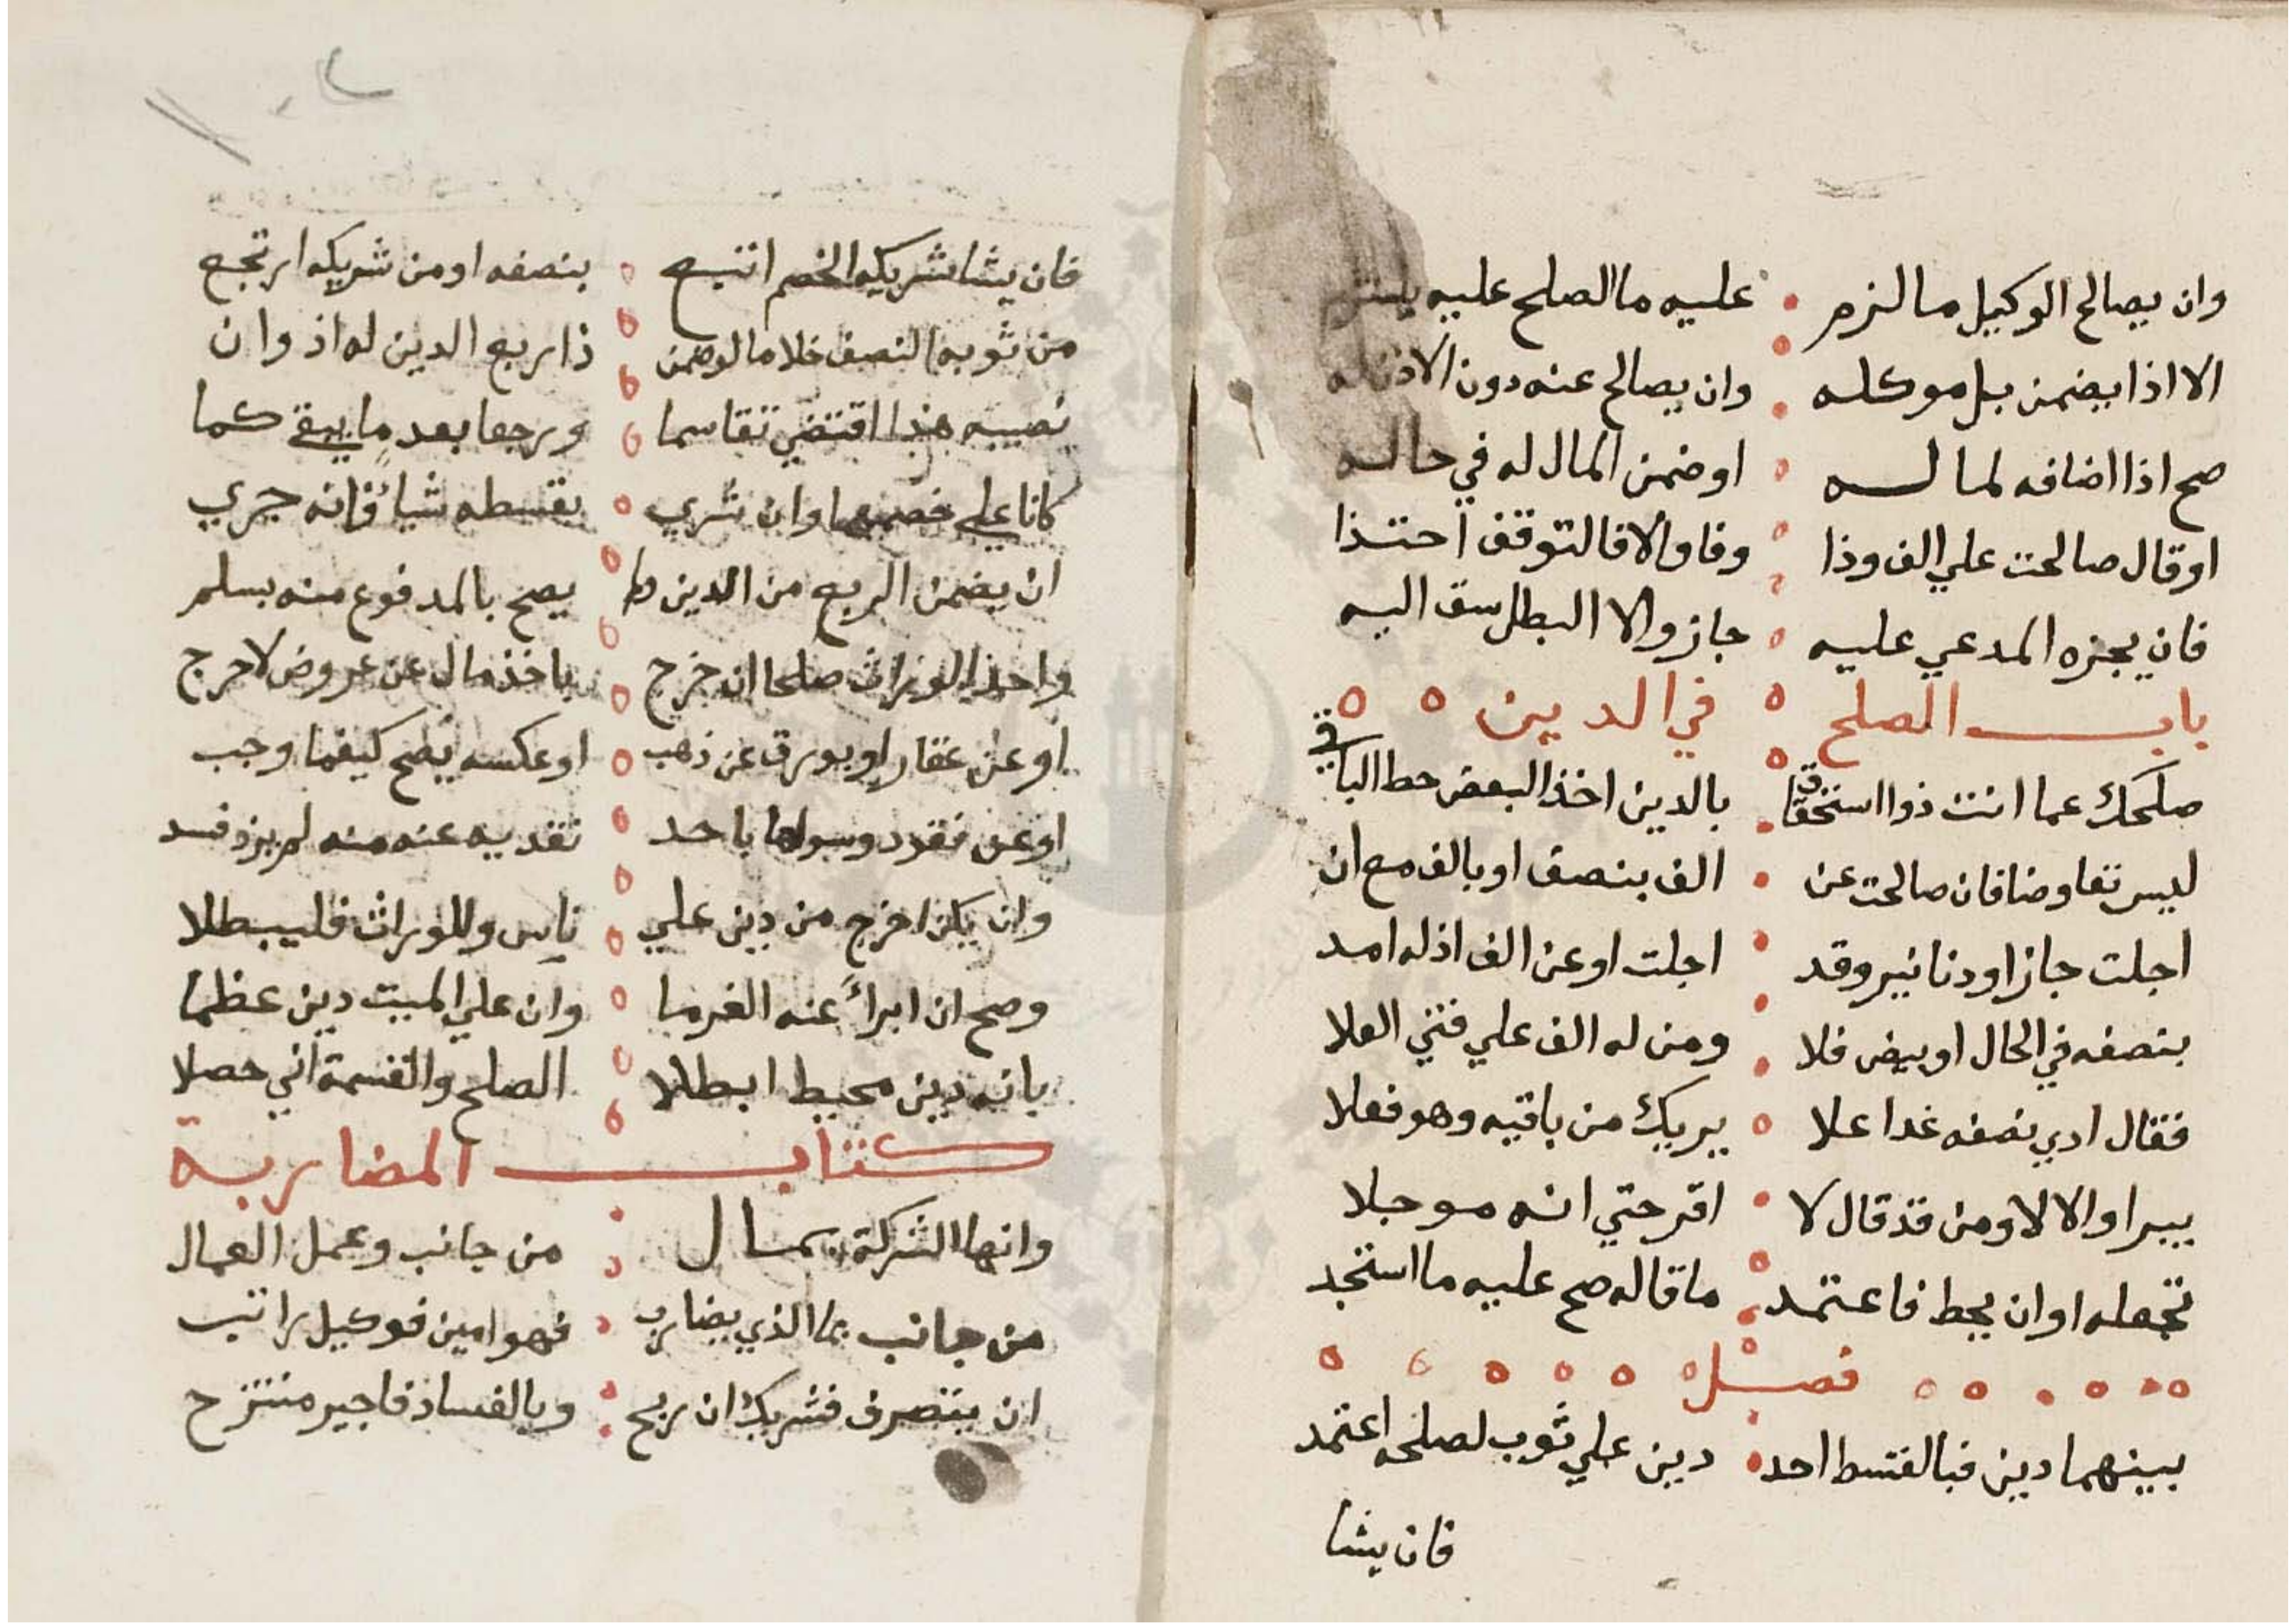 وان يصالح الوكيل مالزم عليه مالصلح عليه
الا اذا يضمن بل موكله وان يصالح عنه دون الاذن له
صح اذا اضافه لماله او ضمن المال له في حاله
او قال صالحت علي الف وذا وفا والا فالتوقف احتذا
فان يجزه المدعي عليه جاز والا البطل سق اليه
باب الصلح في الدين
صلحك عما انت ذو استحقاق بالدين اخذ البعض حط الباقي
ليس تعاوضا فان صالحت عن الف بنصف او بالف مع ان
اجلت جاز او دنانير وقد اجلت او عن الف اذ له امد
بنصفه في الحال او بيض فلا ومن له الف علي فتي العلا
فقال ادي نصفه غدا علا يبريك من باقيه وهو فعلا
يبرا والا لا ومن قد قال لا اقر حتي انه موجلا
تجعله او ان يحط فاعتمد ما قاله صح عليه ما استجد
فصل
بينهما دين فبالقسط احد دين علي ثوب لصلحه اعتمد
فان يشا
فان يشا شريكه الخصم اتبع بنصفه او من شريكه ارتجع
من ثوبه النصف خلا ما لو ضمن ذا ربع الدين له اذ وان
نصيبه هذا اقتضي تقاسما ورجعا بعد ما يبقي كما
كانا علي خصمهما وان شري بقسطه شيا فانه حري
ان يضمن الربع من الدين وما يصح بالمدفوع منه بسلم
واحد الوراث صلحا ان خرج باخذ مال عن عروض لا حرج
او عن عقار او بورق عن ذهب او عكسه يصح كيفما وجب
او عن نقود وسواها باحد نقديه عنه منه لم يزد فسد
وان يكن اخرج من دين علي ناس وللوراث فليبطلا
وصح ان ابرأ عنه الغرما وان علي الميت دين عظما
بانه دين محيط ابطلا الصلح والقسمة اني حصلا
كتاب المضاربة
وانها الشركة بمال من جانب وعمل العمال
من جانب بما الذي يضارب فهو امين فوكيل راتب
ان يتصرف فشريك ان ربح وبالفساد فاجير منتزح